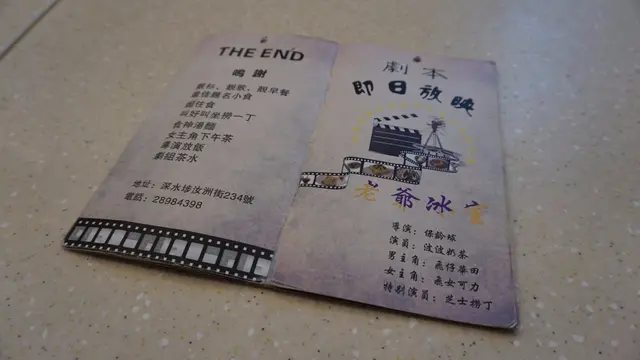 THE END
鳴謝
最佳題名小食
廚住食
叫好叫坐撈一丁
食神湯麵
女主角下午茶
導演放飯
劇組茶水
地址：深水埗汝洲街234號
電話：28984398
劇本
即日放映
老爺冰室
導演：保齡球
演員：波波奶茶
男主角：飛仔華田
女主角：飛女可力
特別演員：芝士撈丁